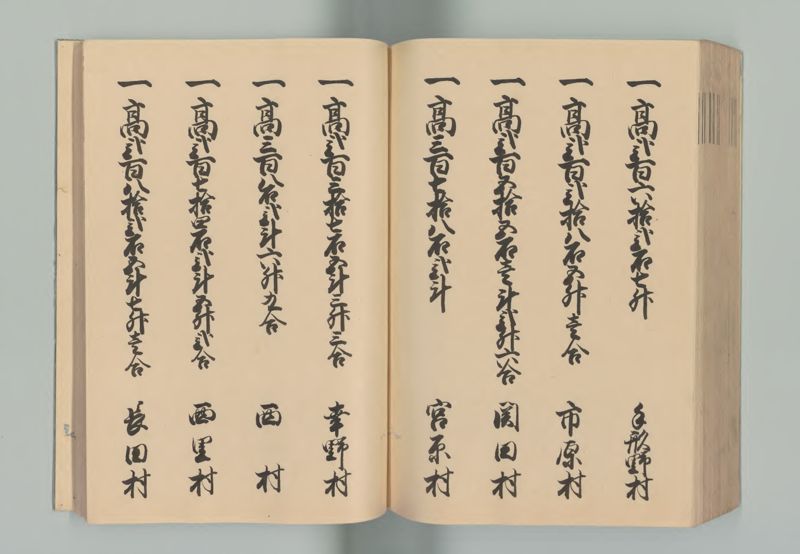 一高弐百六拾弐石七升 手形野村
一高弐百弐拾八石五升壱合 市原村
一高弐百五拾五石壱斗弐升六合 関田村
一高三百七拾八石弐斗 宮原村
一高弐百三拾七石五斗三升三合 幸野村
一高三百八石弐斗六升九合 西村
一高弐百七拾四石弐斗五升弐合 西里村
一高弐百八拾弐石五斗七升壱合 長田村